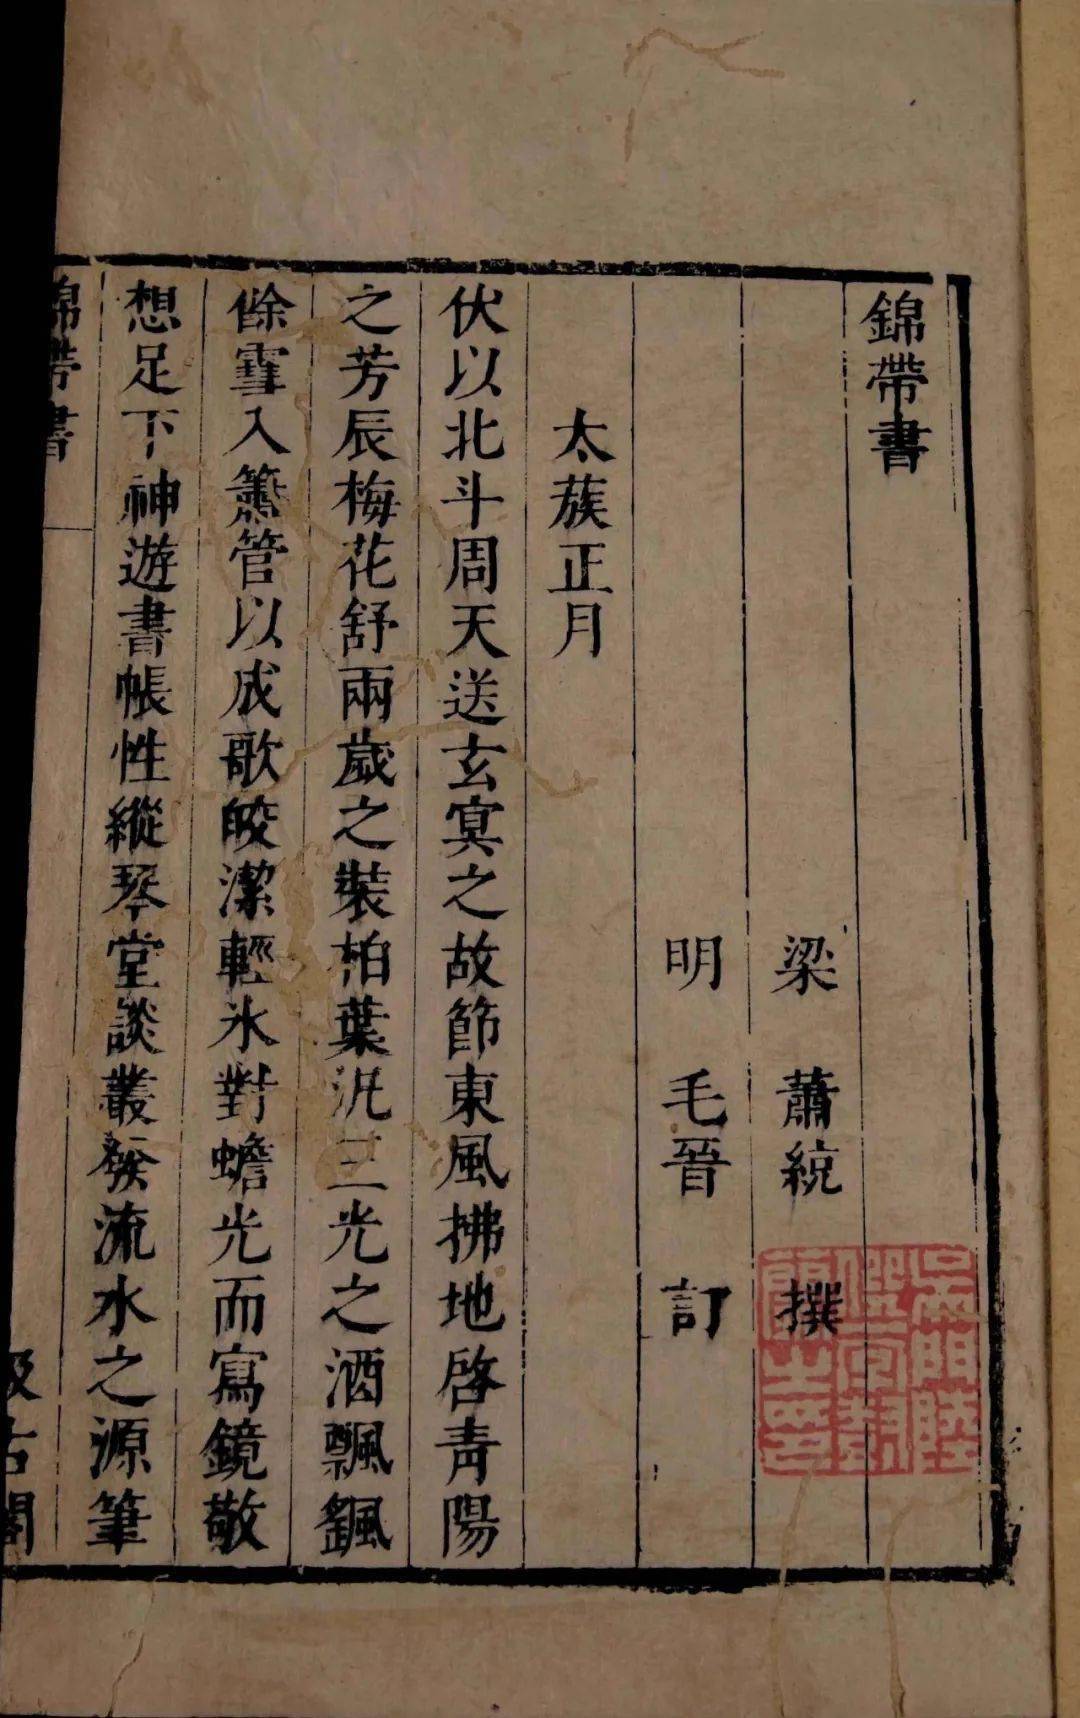 錦帶書
梁 蕭統 撰
明 毛晉 訂
太蔟正月
伏以北斗周天送玄冥之故節東風拂地啓青陽
之芳辰梅花舒兩歲之裝柏葉泛三光之酒飄颻
餘雪入簫管以成歌皎潔輕氷對蟾光而寫鏡敬
想足下神遊書帳性縱琴堂談叢發流水之源筆
錦帶書
汲古閣
吳門陸
僎字樹
蘭之印